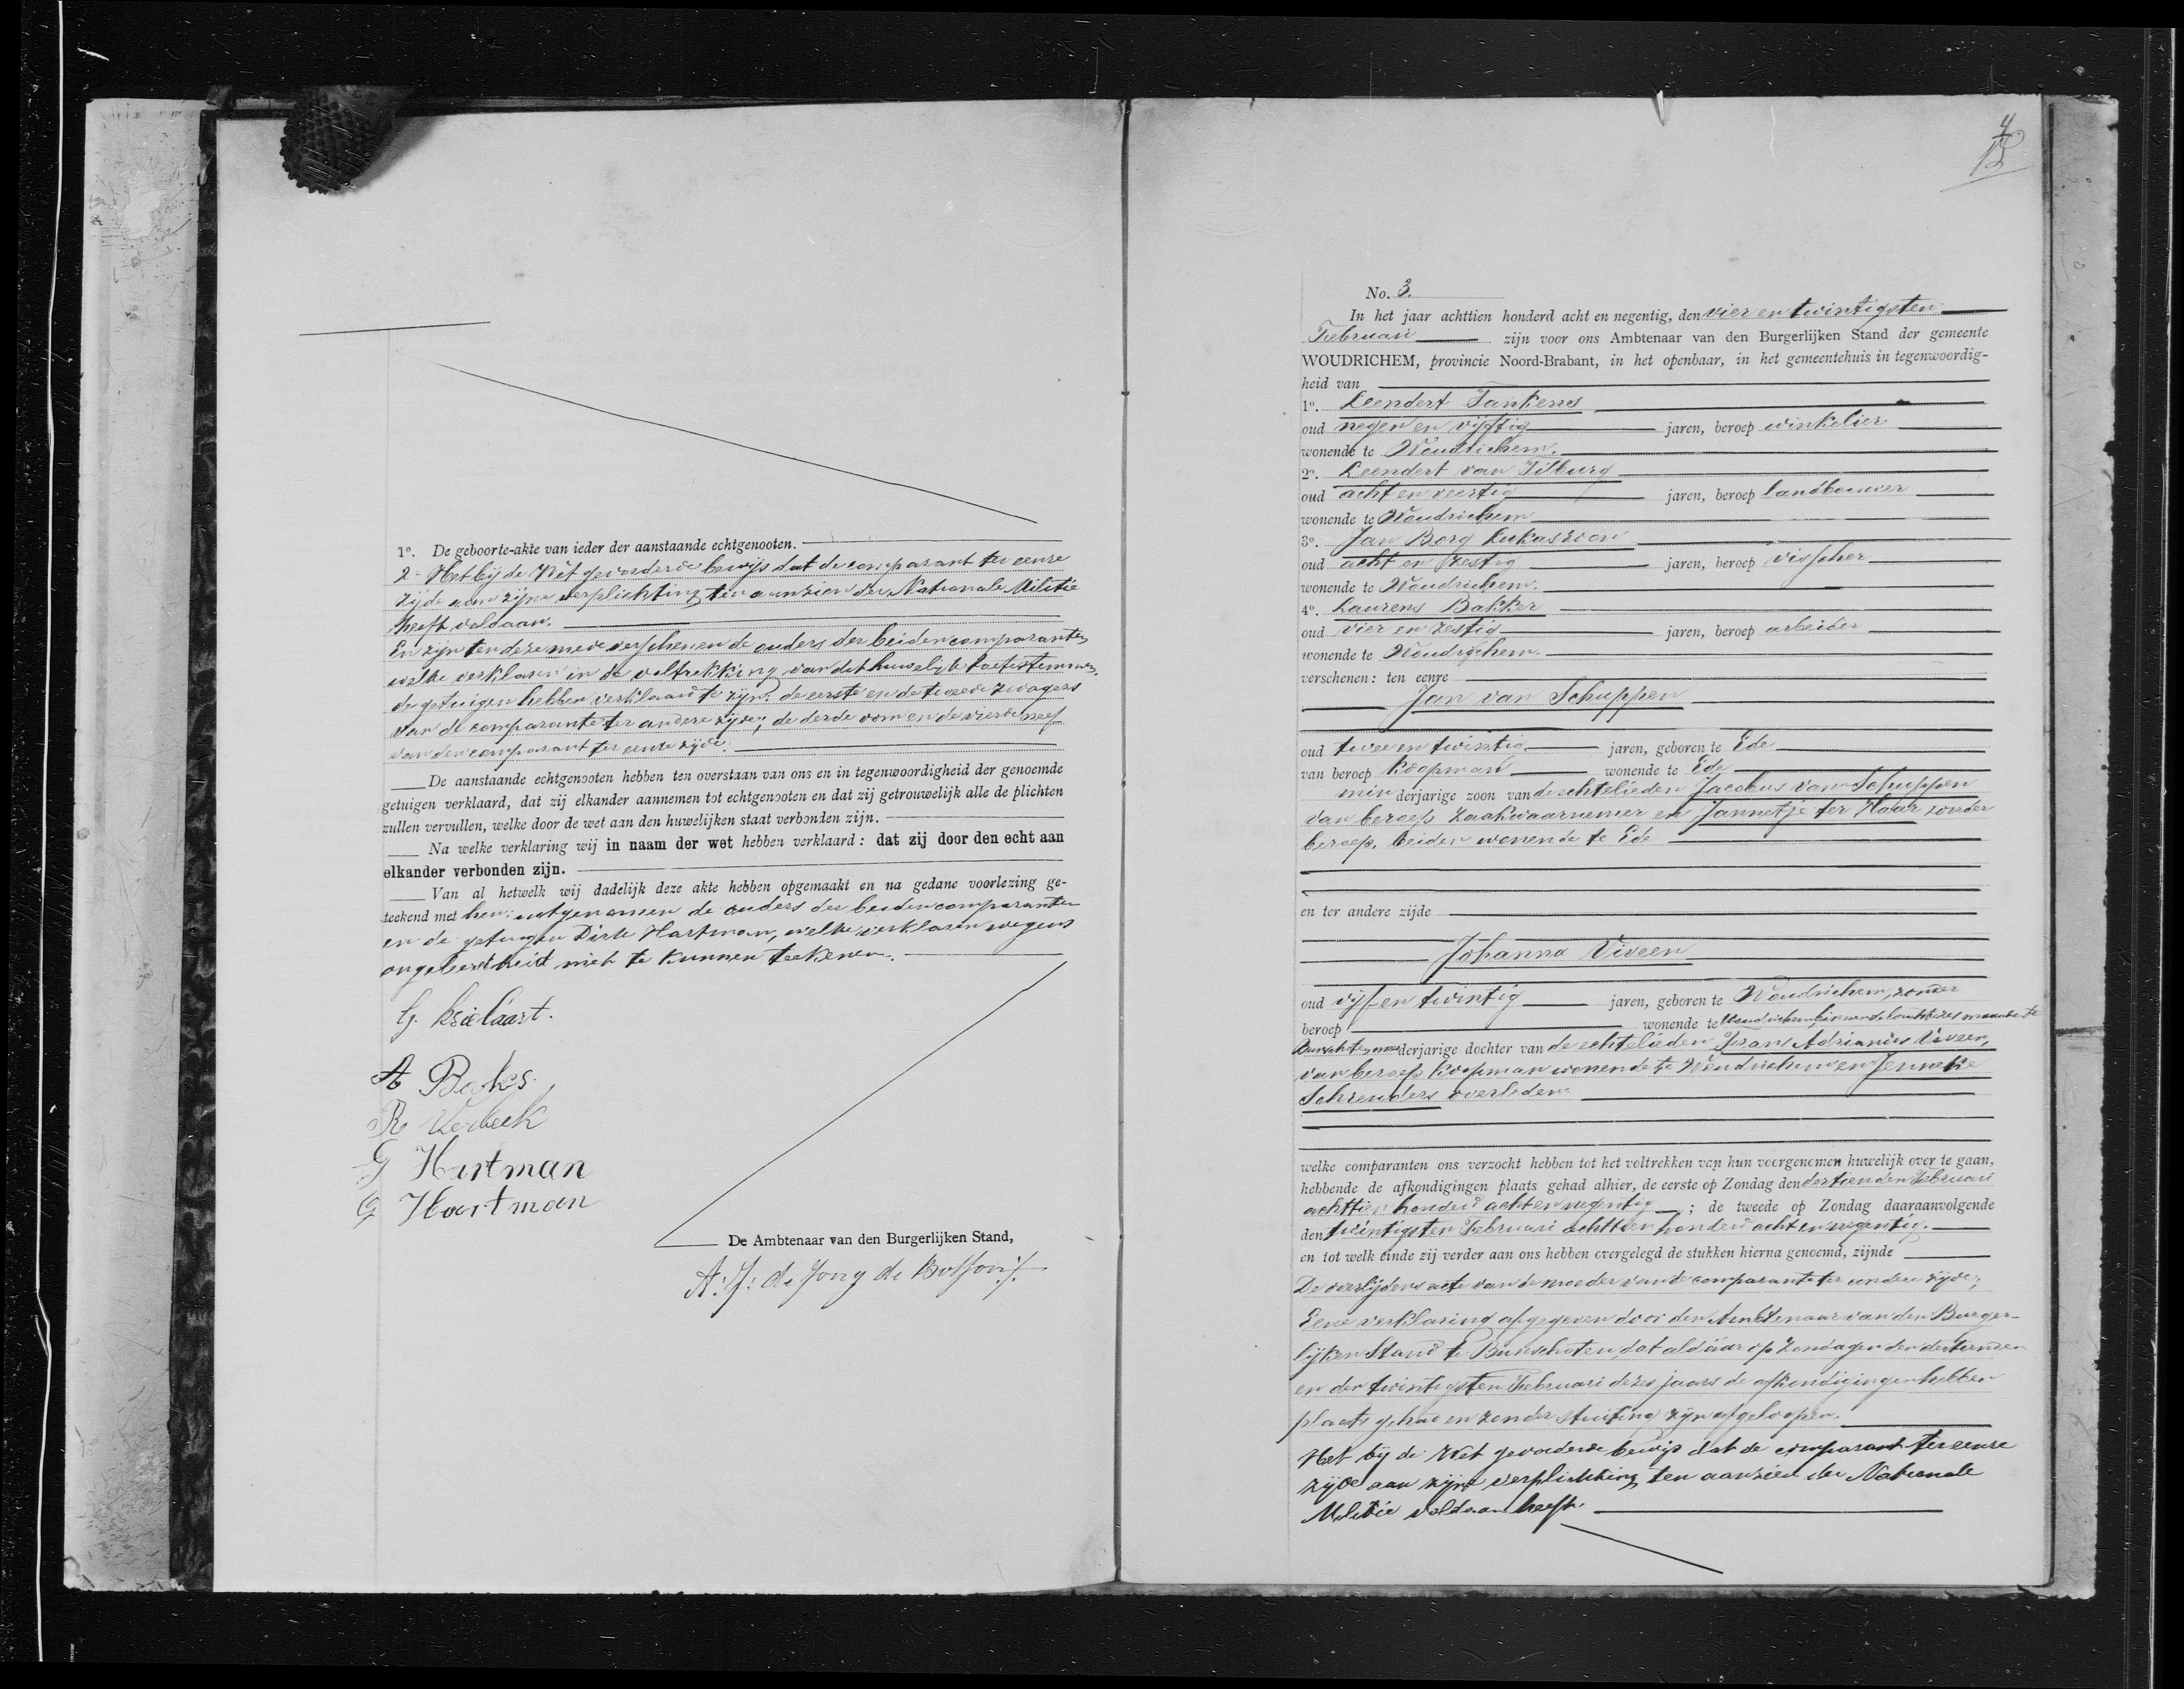 1o. De geboorte-akte van ieder der aanstaande echtgenooten.
2o Het bij de Wet gevorderde bewijs dat de comparant ter eenre
zijde aan zijne verplichting ten aanzien der Nationale Militie
heeft voldaan.
En zijn ten deze mede verschenen de ouders der beiden comparanten
welke verklaren in de voltrekking van dit huwelijk toetestemmen.
de getuigen hebben verklaard te zijn: de eerste en de tweede zwagers
van de comparante ter andere zijde; de derde oom en de vierde neef
van den comparant ter eenre zijde.
De aanstaande echtgenooten hebben ten overstaan van ons en in tegenwoordigheid der genoemde
getuigen verklaard, dat zij elkander aannemen tot echtgenooten en dat zij getrouwelijk alle de plichten
zullen vervullen, welke door de wet aan den huwelijken staat verbonden zijn.
Na welke verklaring wij in naam der wet hebben verklaard: dat zij door den echt aan
elkander verbonden zijn.
Van al hetwelk wij dadelijk deze akte hebben opgemaakt en na gedane voorlezing ge-
teekend met hen: uitgenomen de ouders der beiden comparanten
en de getuigen Dirk Hartman, welke verklaren wegens
ongeleerdheid niet te kunnen teekenen.
G.
A
R Verbeek
G Hartman
G Hartman
De Ambtenaar van den Burgerlijken Stand,
de Jong de
4
No. 3.
In het jaar achttien honderd acht en negentig, den vier en twintigsten
Februari zijn voor ons Ambtenaar van den Burgerlijken Stand der gemeente
WOUDRICHEM, provincie Noord-Brabant, in het openbaar, in het gemeentehuis in tegenwoordig-
heid van
1o. Leendert Tankens
oud negen en vijftig jaren, beroep winkelier
wonende te Woudrichem.
2o. Leendert van Tilburg
oud acht en veertig jaren, beroep landbouwer
wonende te Woudrichem
3o. Jan Borg Lukaszoon
oud acht en zestig jaren, beroep visscher
wonende te Woudrichem.
4o. Laurens Bakker
oud vier en zestig jaren, beroep arbeider
wonende te Woudrichem.
verschenen: ten eenre
Jan van Schuppen
oud twee en twintig jaren, geboren te Ede
van beroep Koopman wonende te Ede
minderjarige zoon van de echtelieden Jacobus van Schuppen
van beroep Zaakwaarnemer en Jannetje ter Haar zonder
beroep, beiden wonende te Ede
en ter andere zijde
Johanna Viveen
oud vijf en twintig jaren, geboren te Woudrichem, zonder
beroep wonende te Woudrichem, binnen de laatste zes maanden te
Bunschoten, meerderjarige dochter van de echtelieden Adrianus Viveen,
van beroep Koopman wonende te Woudrichem en Jenneke
Schreuders overleden
welke comparanten ons verzocht hebben tot het voltrekken van hun voorgenomen huwelijk over te gaan,
hebbende de afkondigingen plaats gehad alhier, de eerste op Zondag den dertienden Februari
achttien honderd acht en negentig; de tweede op Zondag daaraanvolgende
den twintigsten Februari achttien honderd acht en negentig.
en tot welk einde zij verder aan ons hebben overgelegd de stukken hierna genoemd, zijnde
De overlijdens acte van de moeder van de comparante ter andere zijde;
Eene verklaring afgegeven door den Ambtenaar van den Burger-
lijken Stand te Bunschoten, dat aldaar op Zondagen den dertienden
en den twintigsten Februari dezes jaars de afkondigingen hebben
plaats gehad en zonder stuiting zijn afgeloopen.
Het bij de Wet gevorderde bewijs dat de comparant ter eenre
zijde aan zijne verplichting ten aanzien der Nationale
Militie voldaan heeft.